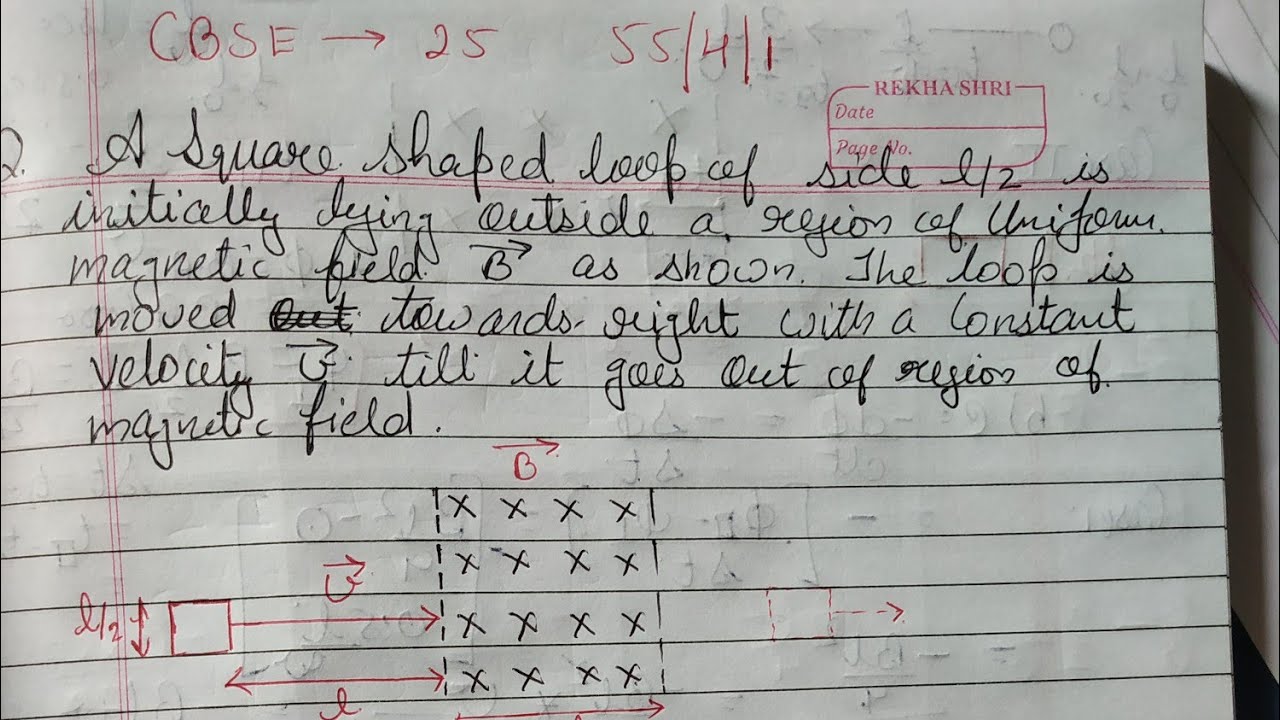 CBSE → 25 55/4/1
REKHA SHRI
Date
Page No.
2. A Square shaped loop of side l/2 is
initically lying outside a region of Uniform.
magnetic field B as shown. The loop is
moved out towards right with a constant
velocity v till it goes out of region of
magnetic field.
B
x x x x
x x x x
v
l/2
x x x x
x x x x
l